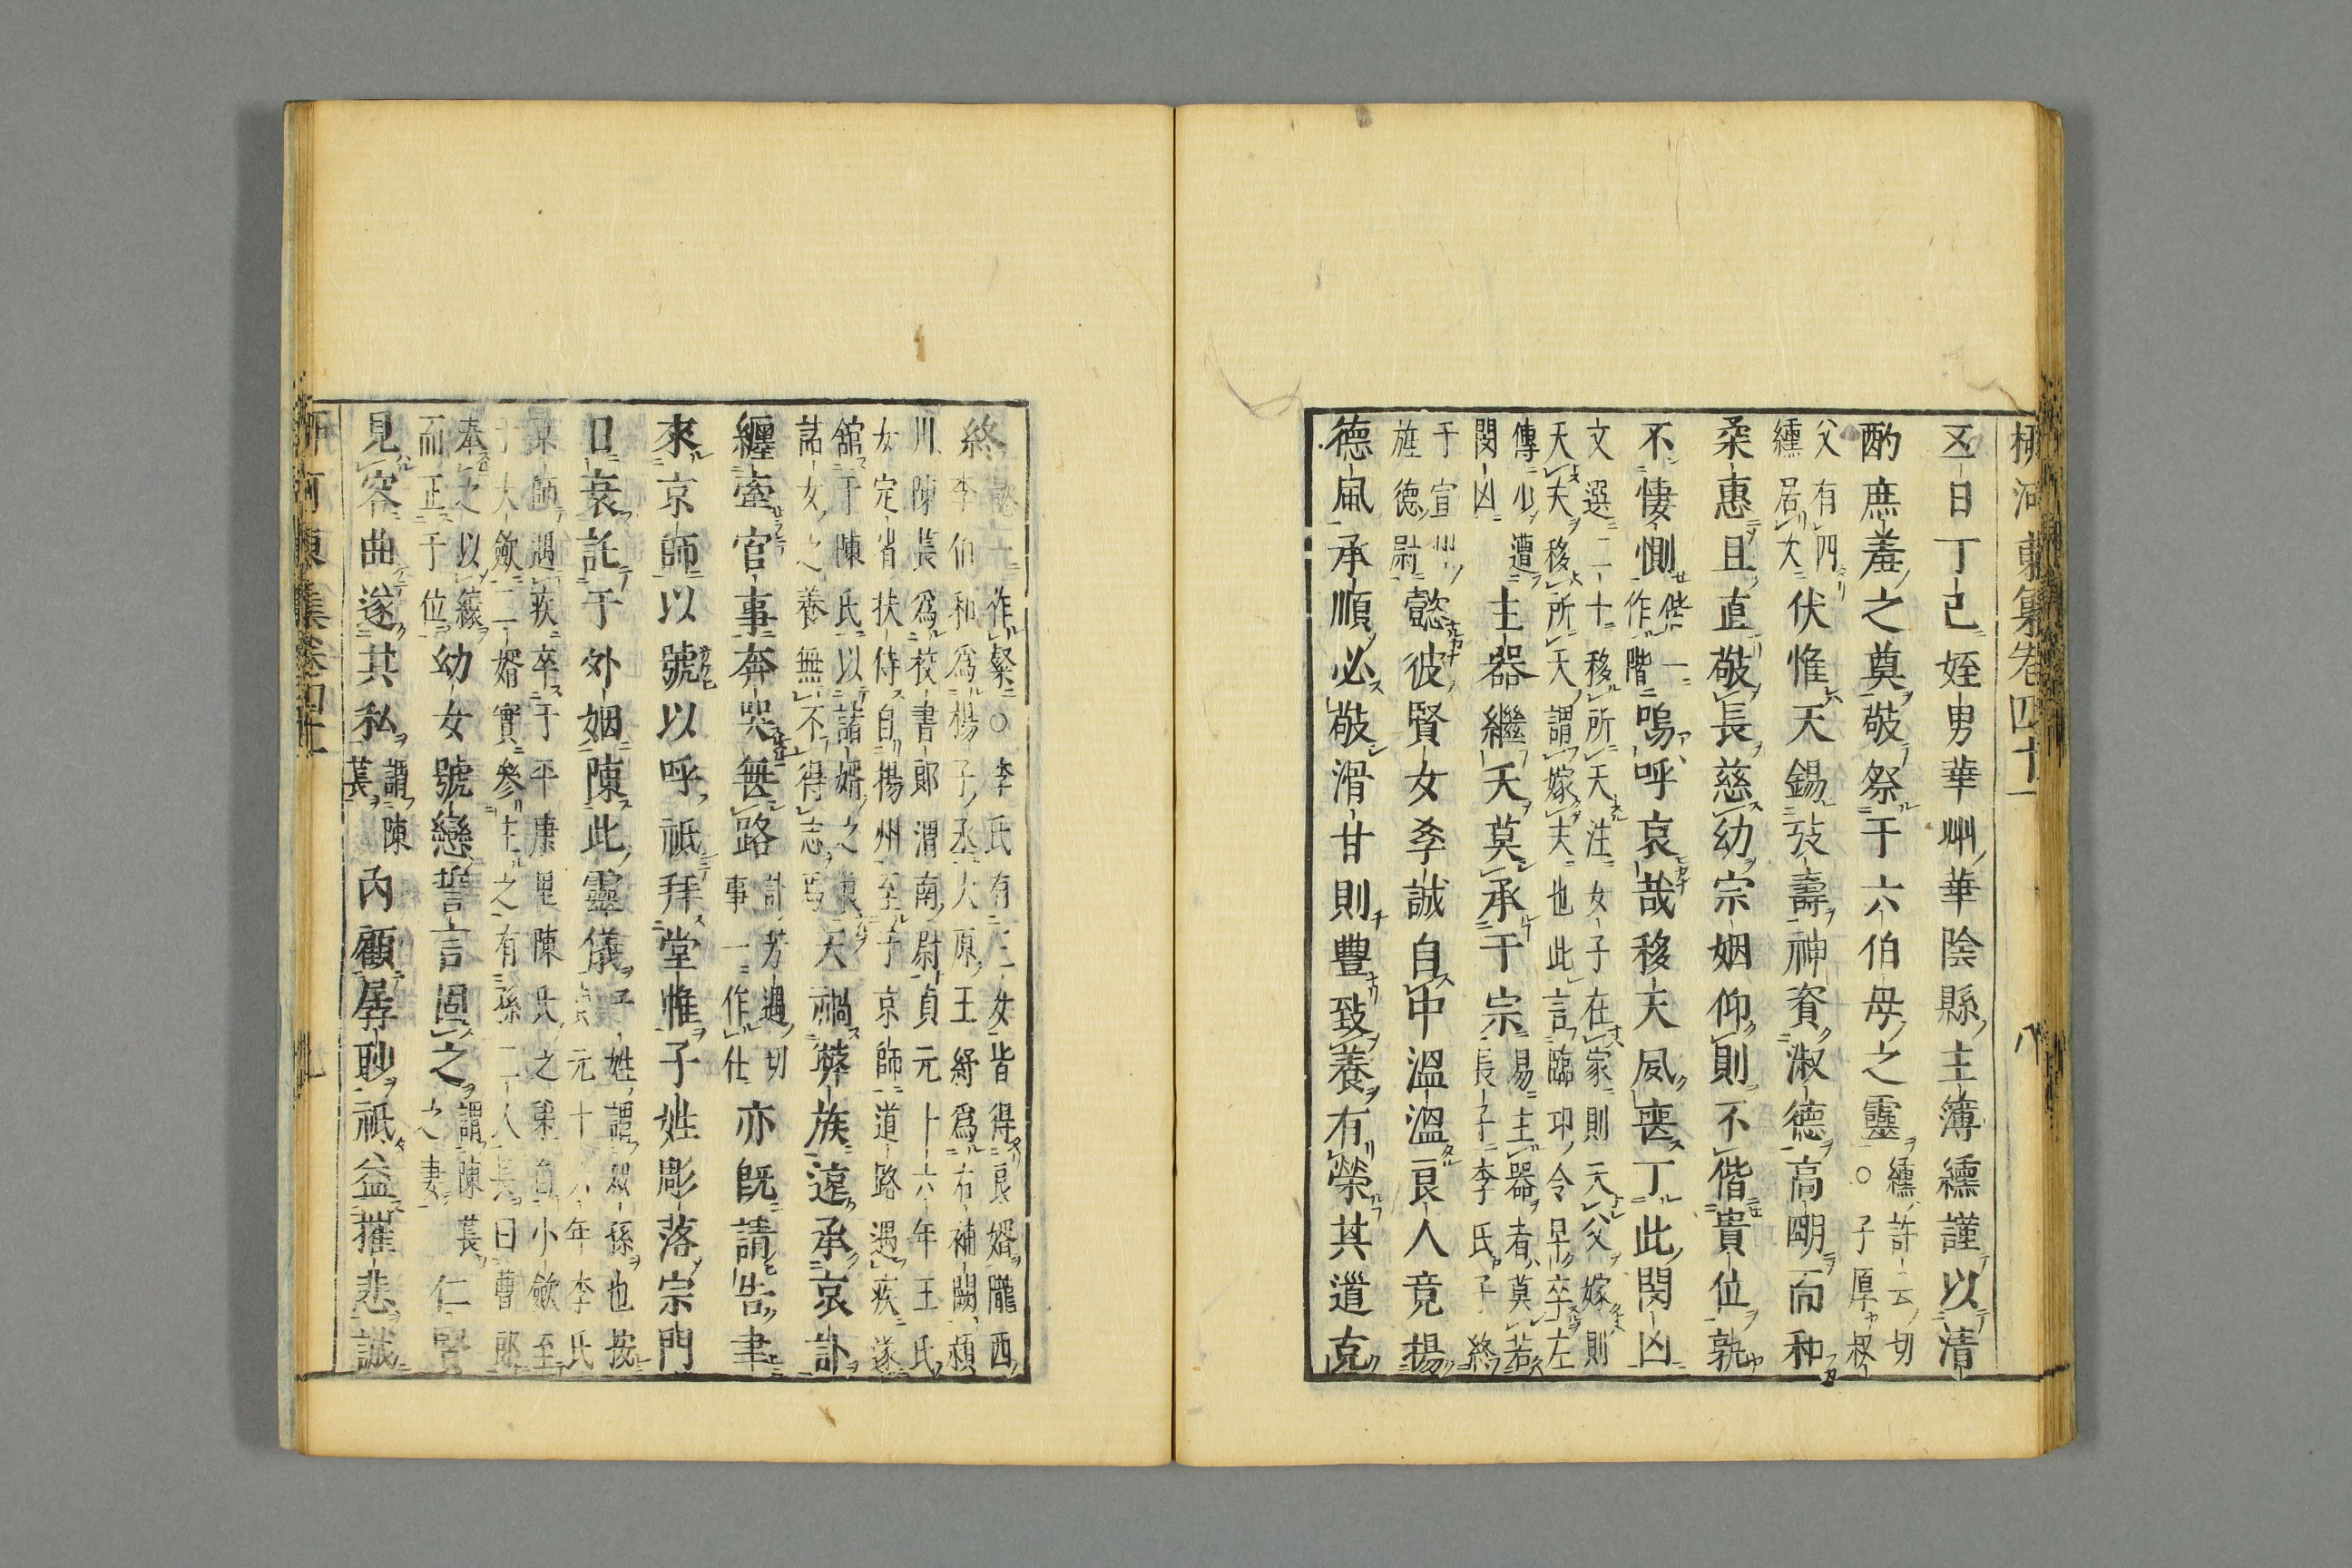 柳河東集卷四十一 八
五日丁巳姪男華州華陰縣主簿纁謹以清
酌庶羞之奠敬祭于六伯母之靈
纁許云切
○子厚叔
父有四
纁居次
伏惟天錫耇壽神資淑德高明而和
柔惠且直敬長慈幼宗姻仰則不偕貴位孰
不悽惻
偕一
作階
嗚呼哀哉移天夙喪丁此閔凶
文選二十移所天注女子在家則天父嫁則
天夫移所天謂嫁夫也此言臨邛令早卒左
傳少遭
閔凶
主器繼夭莫承于宗
易主器者莫若
長子李氏子終
于宣州
旌德尉
懿彼賢女孝誠自中溫溫良人竟揚
德風承順必敬滑甘則豐致養有榮其道克
終
懿一作緊○李氏有三女皆得良婿隴西
李伯和為楊子丞太原王紓為右補闕潁
川陳萇為校書郎渭南尉貞元十六年王氏
女定省扶侍自揚州至于京師道路遇疾遂
舘于陳氏以諸婿之良
諸女之養無不得志焉
天禍弊族遠承哀訃
纏牽官事奔哭無路
訃芳遇切
事一作仕
亦旣請告聿
來京師以號以呼祇拜堂帷子姓彫落宗門
日衰託于外姻陳此靈儀
子姓謂衆孫也按
貞元十六年李氏
京師遇疾卒于平康里陳氏之第自小斂至
于大斂二婿實參主之有孫二人長曰曹郎
奉之以縗
而正于位
幼女號戀誓言固之
謂陳萇
之妻
仁賢
見容曲遂其私
謂陳
萇
內顧孱眇祇益摧悲誠